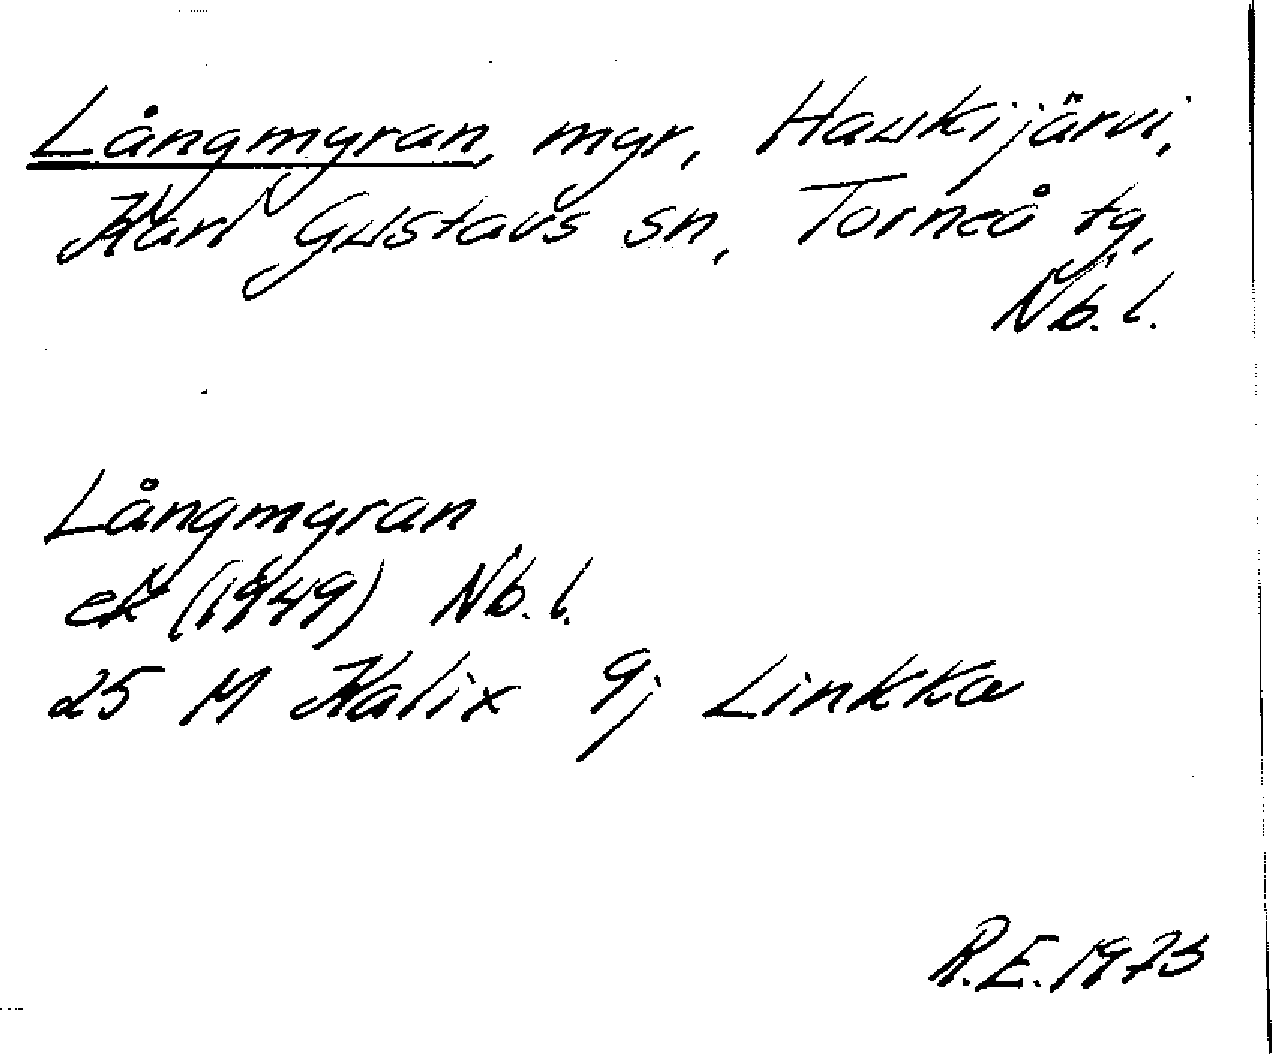 Långmyran, myr, Haukijärvi,
Karl Gustavs sn, Torneå tg,
Nb. l.
Långmyran
ek (1949) Nb. l.
25 M Kalix 9j Linkka
R.E. 1973